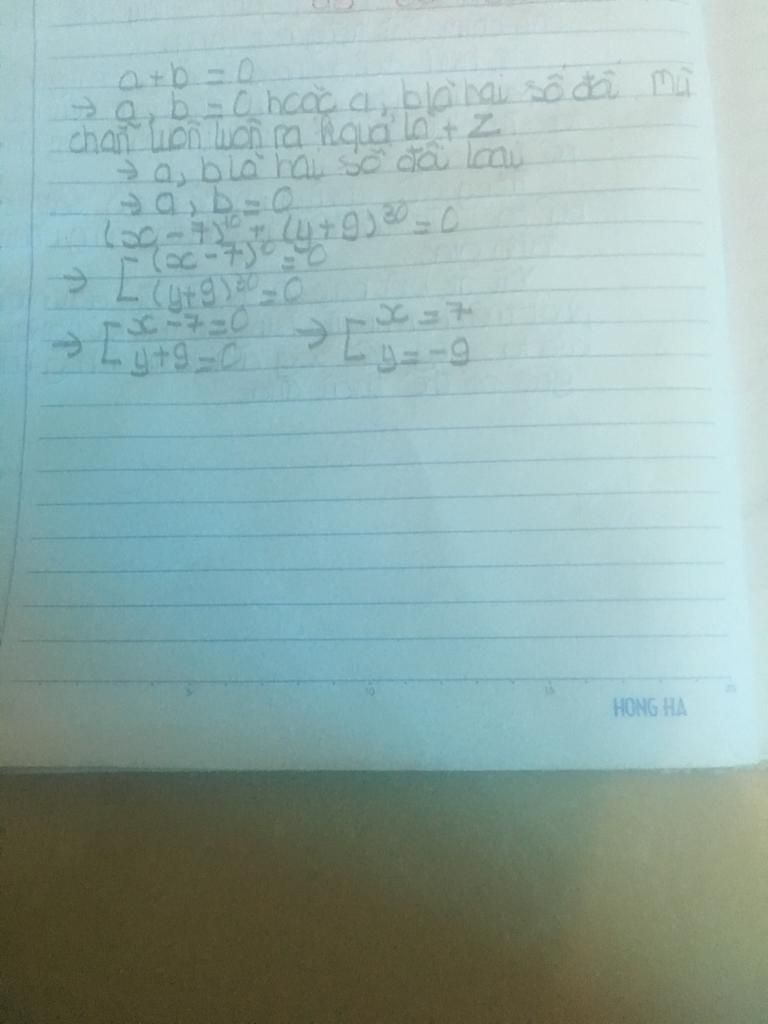 a + b = 0
→ a, b = 0 hoặc a, b là hai số đối mũ
chẵn luôn luôn ra kquả là + Z
→ a, b là hai số đối loại
→ a, b = 0
(x - 7)¹⁰ + (y + 9)²⁰ = 0
→ [ (x - 7)¹⁰ = 0
(y + 9)²⁰ = 0
→ [ x - 7 = 0 → [ x = 7
y + 9 = 0 y = -9
5 10 15 20
HONG HA